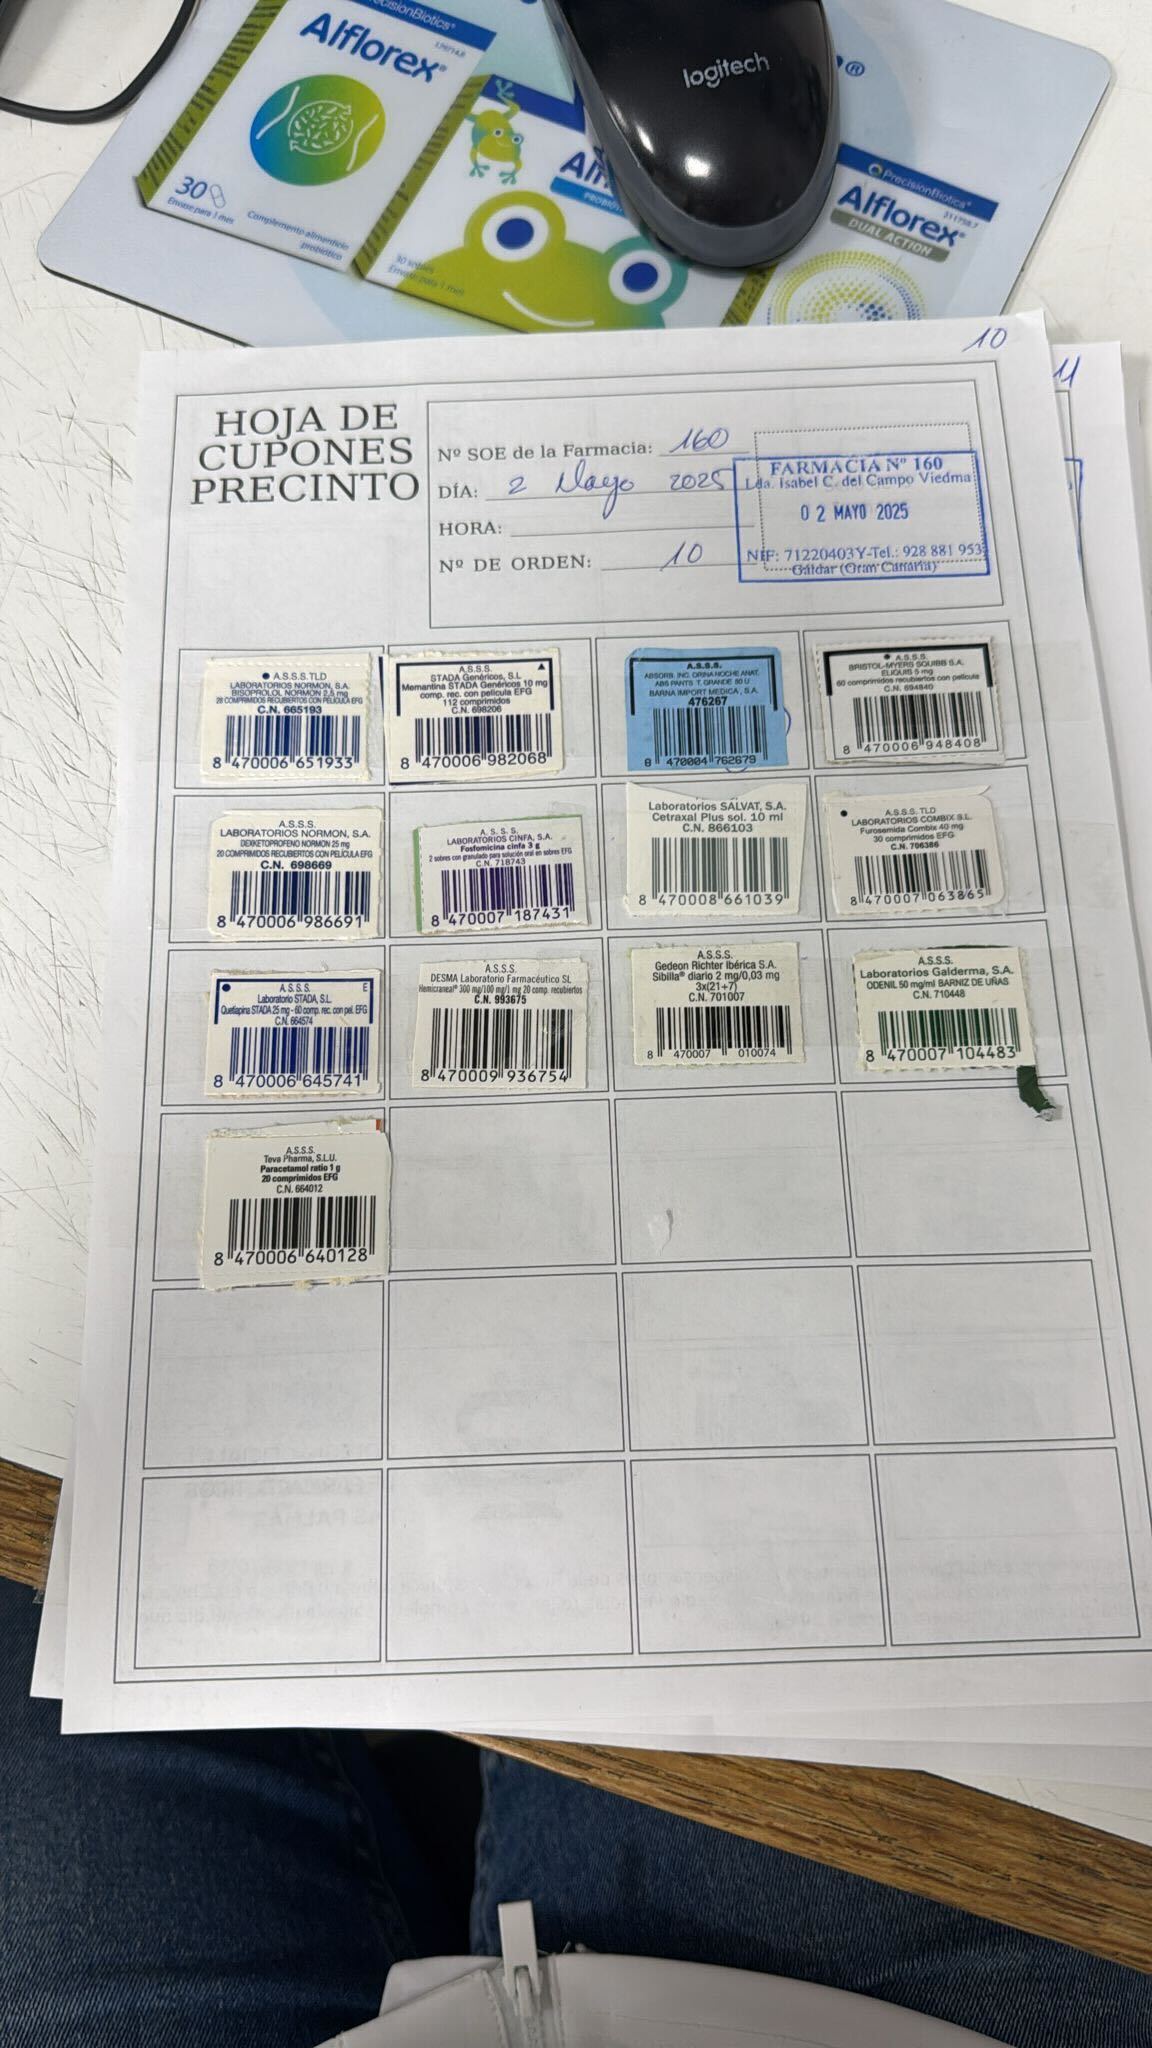 PrecisionBiotics®
Alflorex®
30
Envase para 1 mes
Complemento alimenticio
probiótico
30 sobres
Envase para 1 mes
logitech
PrecisionBiotics®
Alflorex®
DUAL ACTION
10
11
HOJA DE
CUPONES
PRECINTO
Nº SOE de la Farmacia: 160
DÍA: 2 Mayo 2025
HORA:
Nº DE ORDEN: 10
FARMACIA Nº 160
Lda. Isabel C. del Campo Viedma
02 MAYO 2025
NIF: 71220403Y-Tel.: 928 881 953
Gáldar (Gran Canaria)
A.S.S.S. TLD
LABORATORIOS NORMON, S.A.
BISOPROLOL NORMON 2,5 mg
28 COMPRIMIDOS RECUBIERTOS CON PELICULA EFG
C.N. 665193
8 470006 651933
A.S.S.S.
STADA Genéricos, S.L.
Memantina STADA Genéricos 10 mg
comp. rec. con película EFG
112 comprimidos
C.N. 698206
8 470006 982068
A.S.S.S.
ABSORB. INC. ORINA NOCHE ANAT.
ABS PANTS T. GRANDE 80 U
BARNA IMPORT MEDICA, S.A.
476267
8 470004 762679
A.S.S.S.
BRISTOL-MYERS SQUIBB S.A.
ELIQUIS 5 mg
60 comprimidos recubiertos con película
C.N. 694840
8 470006 948408
A.S.S.S.
LABORATORIOS NORMON, S.A.
DEXKETOPROFENO NORMON 25 mg
20 COMPRIMIDOS RECUBIERTOS CON PELÍCULA EFG
C.N. 698669
8 470006 986691
A.S.S.S.
LABORATORIOS CINFA, S.A.
Fosfomicina cinfa 3 g
2 sobres con granulado para solución oral en sobres EFG
C.N. 718743
8 470007 187431
Laboratorios SALVAT, S.A.
Cetraxal Plus sol. 10 ml
C.N. 866103
8 470008 661039
A.S.S.S. TLD
LABORATORIOS COMBIX S.L.
Furosemida Combix 40 mg
30 comprimidos EFG
C.N. 706386
8 470007 063865
A.S.S.S. E
Laboratorio STADA, S.L.
Quetiapina STADA 25 mg - 60 comp. rec. con pel. EFG
C.N. 664574
8 470006 645741
A.S.S.S.
DESMA Laboratorio Farmacéutico SL
Hemicraneal® 300 mg/100 mg/1 mg 20 comp. recubiertos
C.N. 993675
8 470009 936754
A.S.S.S.
Gedeon Richter Ibérica S.A.
Sibilla® diario 2 mg/0,03 mg
3x(21+7)
C.N. 701007
8 470007 010074
A.S.S.S.
Laboratorios Galderma, S.A.
ODENIL 50 mg/ml BARNIZ DE UÑAS
C.N. 710448
8 470007 104483
A.S.S.S.
Teva Pharma, S.L.U.
Paracetamol ratio 1 g
20 comprimidos EFG
C.N. 664012
8 470006 640128